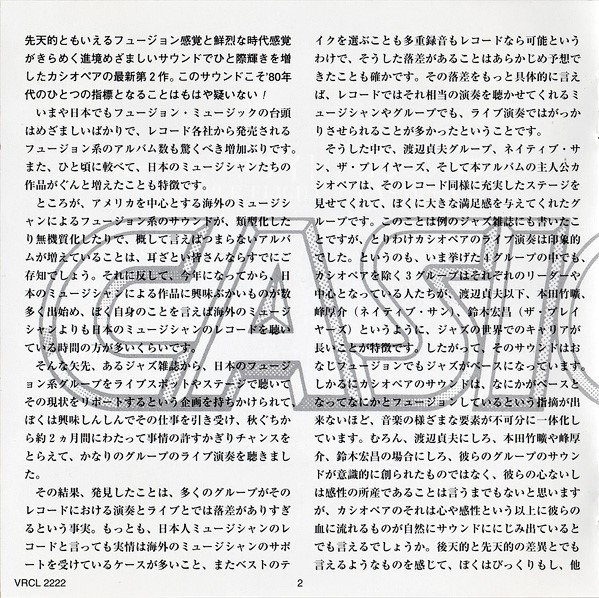 先天的ともいえるフュージョン感覚と鮮烈な時代感覚
がきらめく進境めざましいサウンドでひと際輝きを増
したカシオペアの最新第2作。このサウンドこそ'80年
代のひとつの指標となることはもはや疑いない!
いまや日本でもフュージョン・ミュージックの台頭
はめざましいばかりで、レコード各社から発売される
フュージョン系のアルバム数も驚くべき増加ぶりです。
また、ひと頃に較べて、日本のミュージシャンたちの
作品がぐんと増えたことも特徴です。
ところが、アメリカを中心とする海外のミュージシ
ャンによるフュージョン系のサウンドが、類型化した
り無機質化したりで、概して言えばつまらないアルバ
ムが増えていることは、耳ざとい皆さんならすでにご
存知でしょう。それに反して、今年になってから、日
本のミュージシャンによる作品に興味ぶかいものが数
多く出始め、ぼく自身のことを言えば海外のミュージ
シャンよりも日本のミュージシャンのレコードを聴い
ている時間の方が多いくらいです。
そんな矢先、あるジャズ雑誌から、日本のフュージ
ョン系グループをライブスポットやステージで聴いて
その現状をリポートするという企画を持ちかけられて
ぼくは興味しんしんでその仕事を引き受け、秋ぐちか
ら約2ヵ月間にわたって事情の許すかぎりチャンスを
とらえて、かなりのグループのライブ演奏を聴きまし
た。
その結果、発見したことは、多くのグループがその
レコードにおける演奏とライブとでは落差がありすぎ
るという事実。もっとも、日本人ミュージシャンのレ
コードと言っても実情は海外のミュージシャンのサポ
ートを受けているケースが多いこと、またベストのテ
イクを選ぶことも多重録音もレコードなら可能という
わけで、そうした落差があることはあらかじめ予想で
きたことも確かです。その落差をもっと具体的に言え
ば、レコードではそれ相当の演奏を聴かせてくれるミ
ュージシャンやグループでも、ライブ演奏ではがっか
りさせられることが多かったということです。
そうした中で、渡辺貞夫グループ、ネイティブ・サ
ン、ザ・プレイヤーズ、そして本アルバムの主人公カ
シオペアは、そのレコード同様に充実したステージを
見せてくれて、ぼくに大きな満足感を与えてくれたグ
ループです。このことは例のジャズ雑誌にも書いたこ
とですが、とりわけカシオペアのライブ演奏は印象的
でした。というのも、いま挙げた4グループの中でも、
カシオペアを除く3グループはそれぞれのリーダーや
中心となっている人たちが、渡辺貞夫以下、本田竹曠、
峰厚介(ネイティブ・サン)、鈴木宏昌(ザ・プレイ
ヤーズ)というように、ジャズの世界でのキャリアが
長いことが特徴です。したがって、そのサウンドはお
なじフュージョンでもジャズがベースになっています。
しかるにカシオペアのサウンドは、なにかがベースと
なってなにかとフュージョンしているという指摘が出
来ないほど、音楽の様ざまな要素が不可分に一体化し
ています。むろん、渡辺貞夫にしろ、本田竹曠や峰厚
介、鈴木宏昌の場合にしろ、彼らのグループのサウン
ドが意識的に創られたものではなく、彼らの心ないし
は感性の所産であることは言うまでもないと思います
が、カシオペアのそれは心や感性という以上に彼らの
血に流れるものが自然にサウンドににじみ出ていると
でも言えるでしょうか。後天的と先天的の差異とでも
言えるようなものを感じて、ぼくはびっくりもし、他
CASIO
VRCL 2222
2